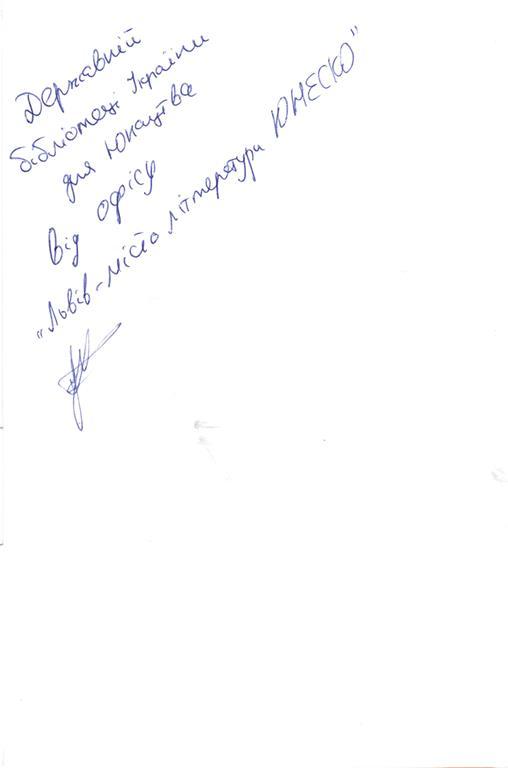 Державній
бібліотеці України
для юнацтва
від офісу
"Львів-місто літератури ЮНЕСКО"